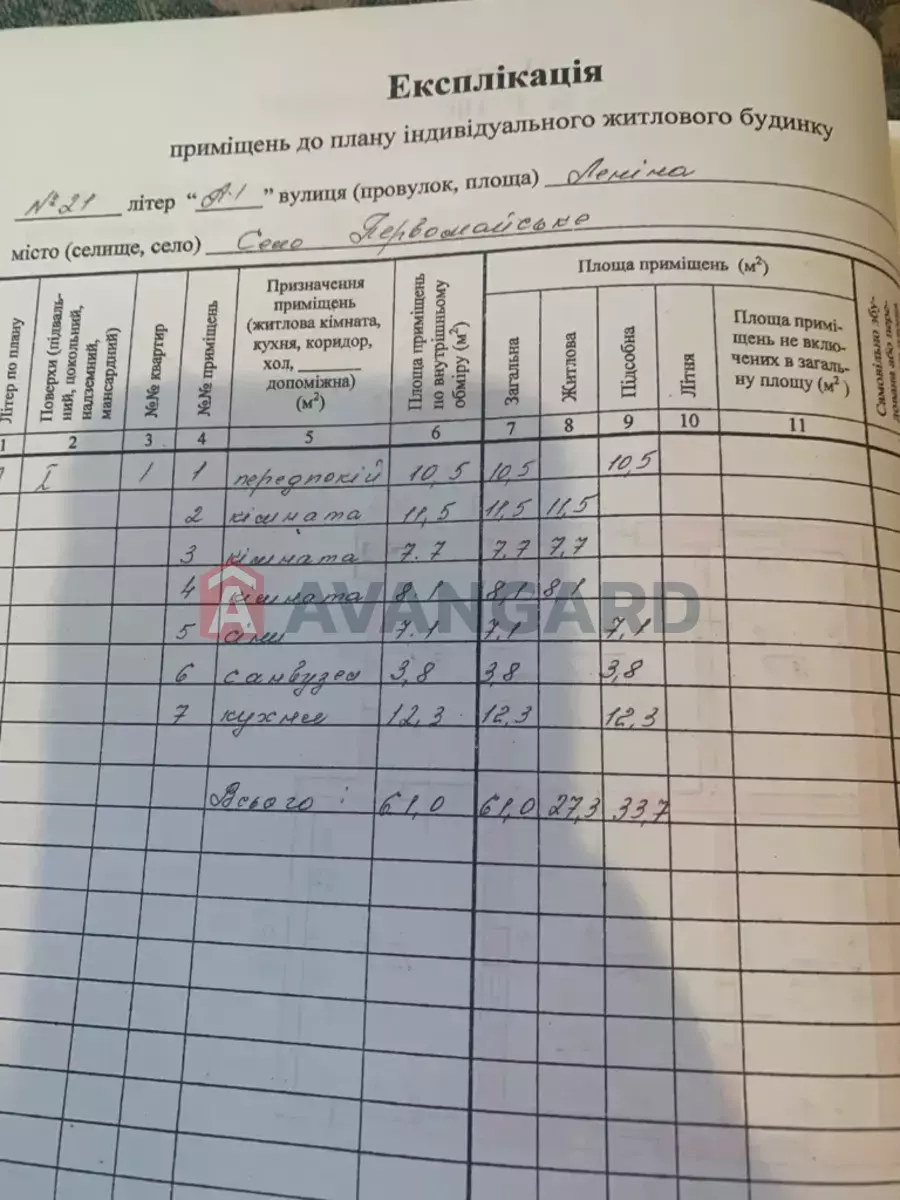 Експлікація
приміщень до плану індивідуального житлового будинку
№21 літер “А-1” вулиця (провулок, площа) Леніна
місто (селище, село) Село Первомайське
Літер по плану
Поверхи (підваль-
ний, цокольний,
надземний,
мансардний)
№№ квартир
№№ приміщень
Призначення
приміщень
(житлова кімната,
кухня, коридор,
хол, ______
допоміжна)
(м²)
Площа приміщень
по внутрішньому
обміру (м²)
Площа приміщень (м²)
Загальна
Житлова
Підсобна
Літня
Площа примі-
щень не вклю-
чених в загаль-
ну площу (м²)
Самовільно збу-
1 2 3 4 5 6 7 8 9 10 11
I 1 1 передпокій 10,5 10,5 10,5
2 кімната 11,5 11,5 11,5
3 кімната 7.7 7.7 7,7
4 кімната 8.1 8,1 8,1
5 7.1 7,1 7,1
6 санвузел 3,8 3,8 3,8
7 кухня 12,3 12,3 12,3
Всього: 61,0 61,0 27,3 33,7
AVANGARD